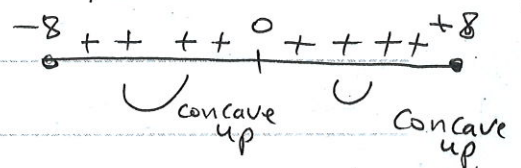 -8 + + + + 0 + + + + +8
concave up
concave up